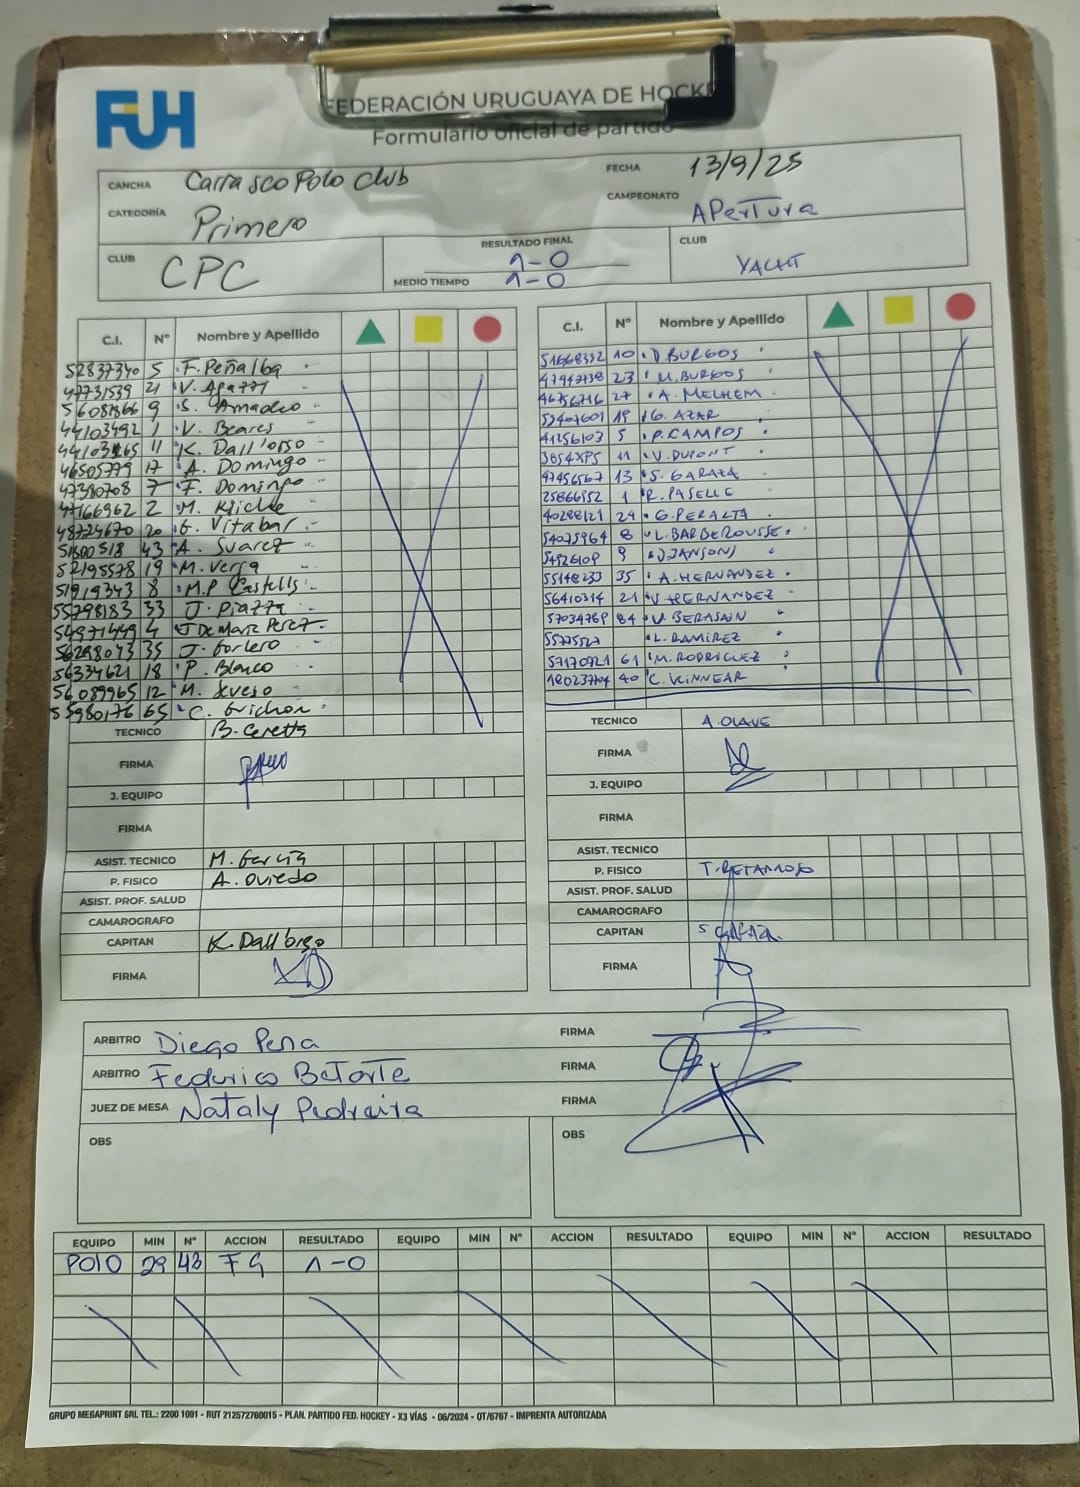 FUH
FEDERACIÓN URUGUAYA DE HOCK
Formulario oficial de partido
CANCHA Carrasco Polo Club
FECHA 13/9/25
CATEGORÍA Primero
CAMPEONATO APertura
CLUB CPC
RESULTADO FINAL 1-0
MEDIO TIEMPO 1-0
CLUB YACHT
C.I. Nº Nombre y Apellido
52837340 5 F. Peñalba
47731539 21 V. Agazzi
56087866 9 S. Amadeo
44103492 1 V. Beares
11 K. Dall'orso
46505779 17 A. Domingo
47380708 7 F. Domingo
47166962 2 M.
48724670 20 G. Vitabar
51800518 43 A. Suarez
52195578 19 M. Verga
51919343 8 M.P Castells
55798183 33 J. Piazza
54971449 4 J De Mare Perez
56288043 35 J. Forlero
56334621 18 P. Blanco
56089965 12 M.
55980176 65 C. Guichon
TECNICO B. Ceretta
FIRMA
J. EQUIPO
FIRMA
ASIST. TECNICO M. García
P. FISICO A. Oviedo
ASIST. PROF. SALUD
CAMAROGRAFO
CAPITAN K. Dall'orso
FIRMA
C.I. Nº Nombre y Apellido
51668332 10 D BURGOS
47947138 23 M. BURGOS
46756716 27 A. MELHEM
53407601 19 G. AZAR
41256103 5 P. CAMPOS
11 V. DUPONT
47456567 13 S. GARAZA
25866152 1 R. PASELLE
40288121 24 G. PERALTA
54075964 8 L. BARBEROUSSE
54926109 9 D JANSONS
55148233 35 A. HERNANDEZ
56410314 21 V HERNANDEZ
57034769 84 V. BERASAIN
55775527 L. RAMIREZ
57170921 61 M. RODRIGUEZ
40 C. KINNEAR
TECNICO A. OLAVE
FIRMA
J. EQUIPO
FIRMA
ASIST. TECNICO
P. FISICO T. RETAMOSO
ASIST. PROF. SALUD
CAMAROGRAFO
CAPITAN S GARAZA
FIRMA
ARBITRO Diego Pena FIRMA
ARBITRO Federico BeTarTe FIRMA
JUEZ DE MESA Nataly Pedreira FIRMA
OBS OBS
EQUIPO MIN Nº ACCION RESULTADO EQUIPO MIN Nº ACCION RESULTADO EQUIPO MIN Nº ACCION RESULTADO
POLO 29 43 FG 1-0
GRUPO MEGAPRINT SRL TEL.: 2200 1091 - RUT 212572760015 - PLAN. PARTIDO FED. HOCKEY - X3 VÍAS - 06/2024 - OT/6767 - IMPRENTA AUTORIZADA